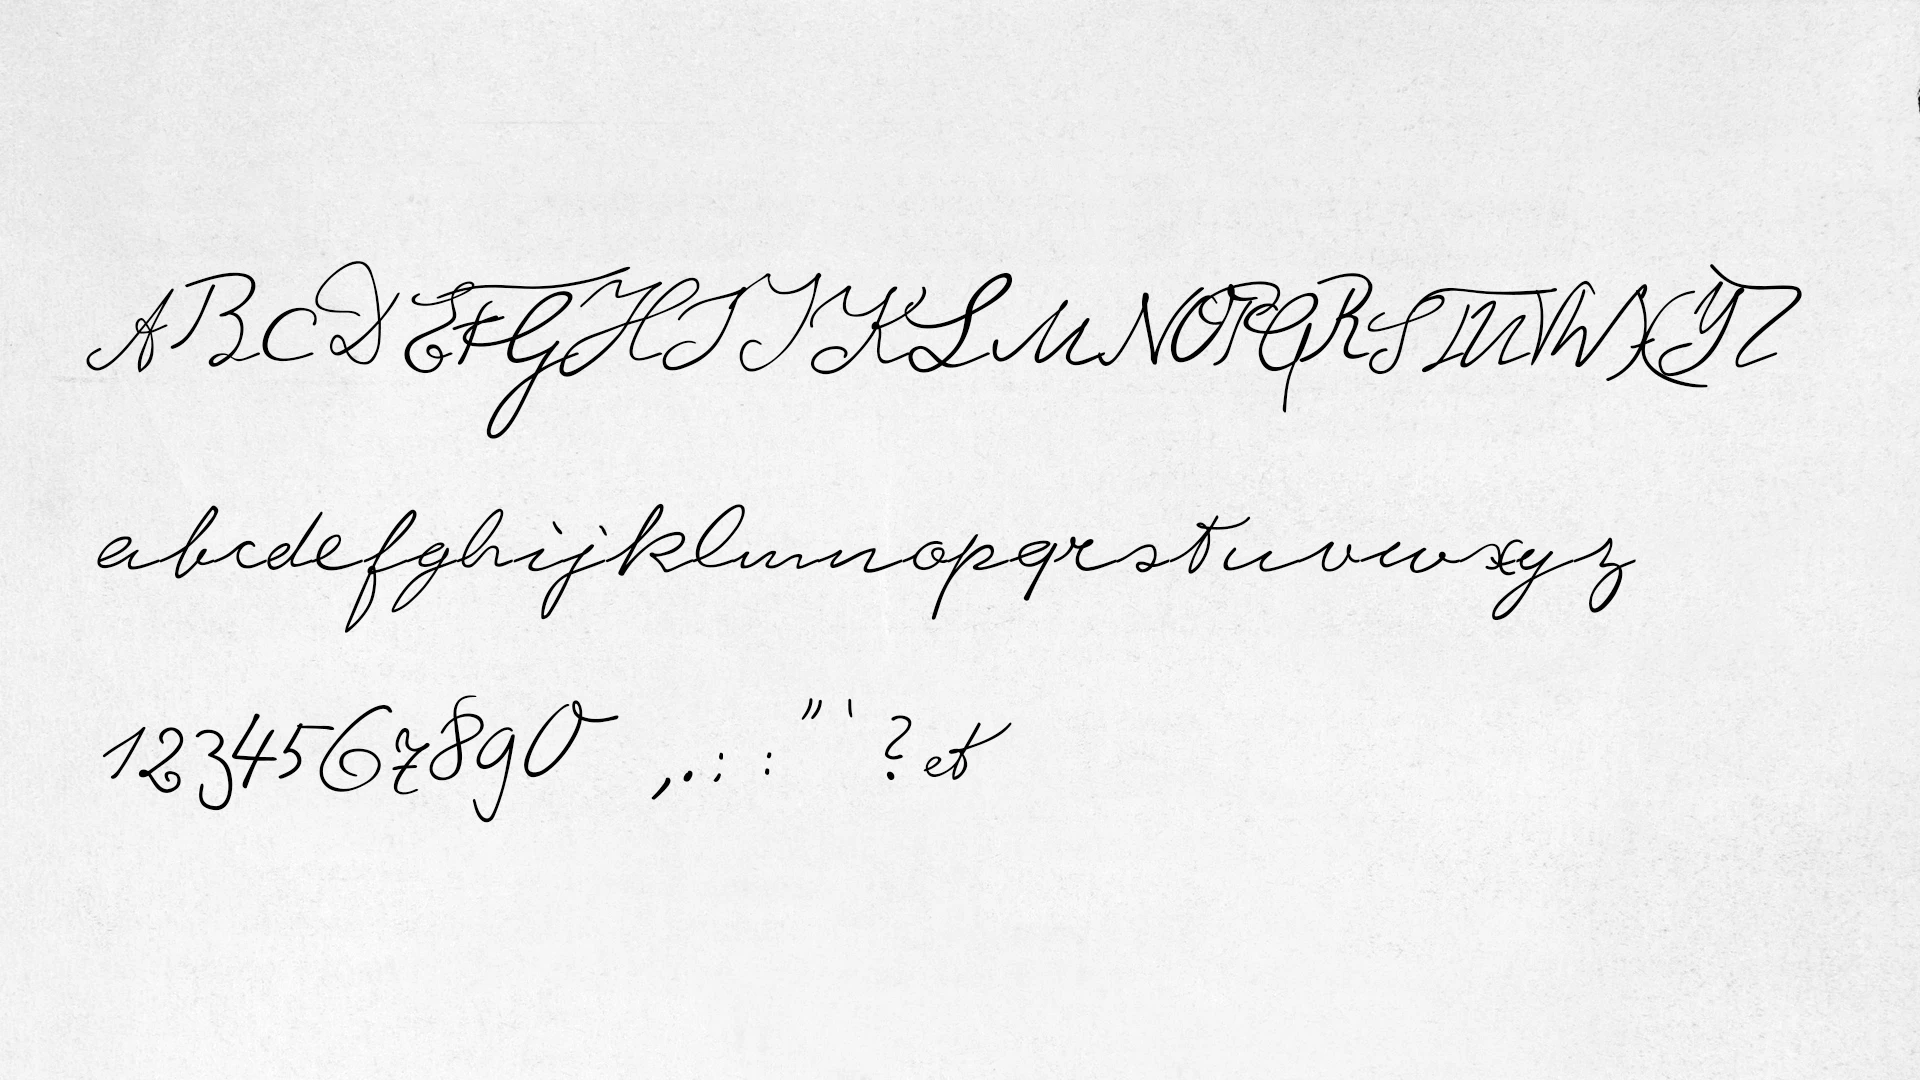 ABCDEFGHIJKLMNOPQRSTUVWXYZ
abcdefghijklmnopqrstuvwxyz
1234567890 ,.; : " ' ? et